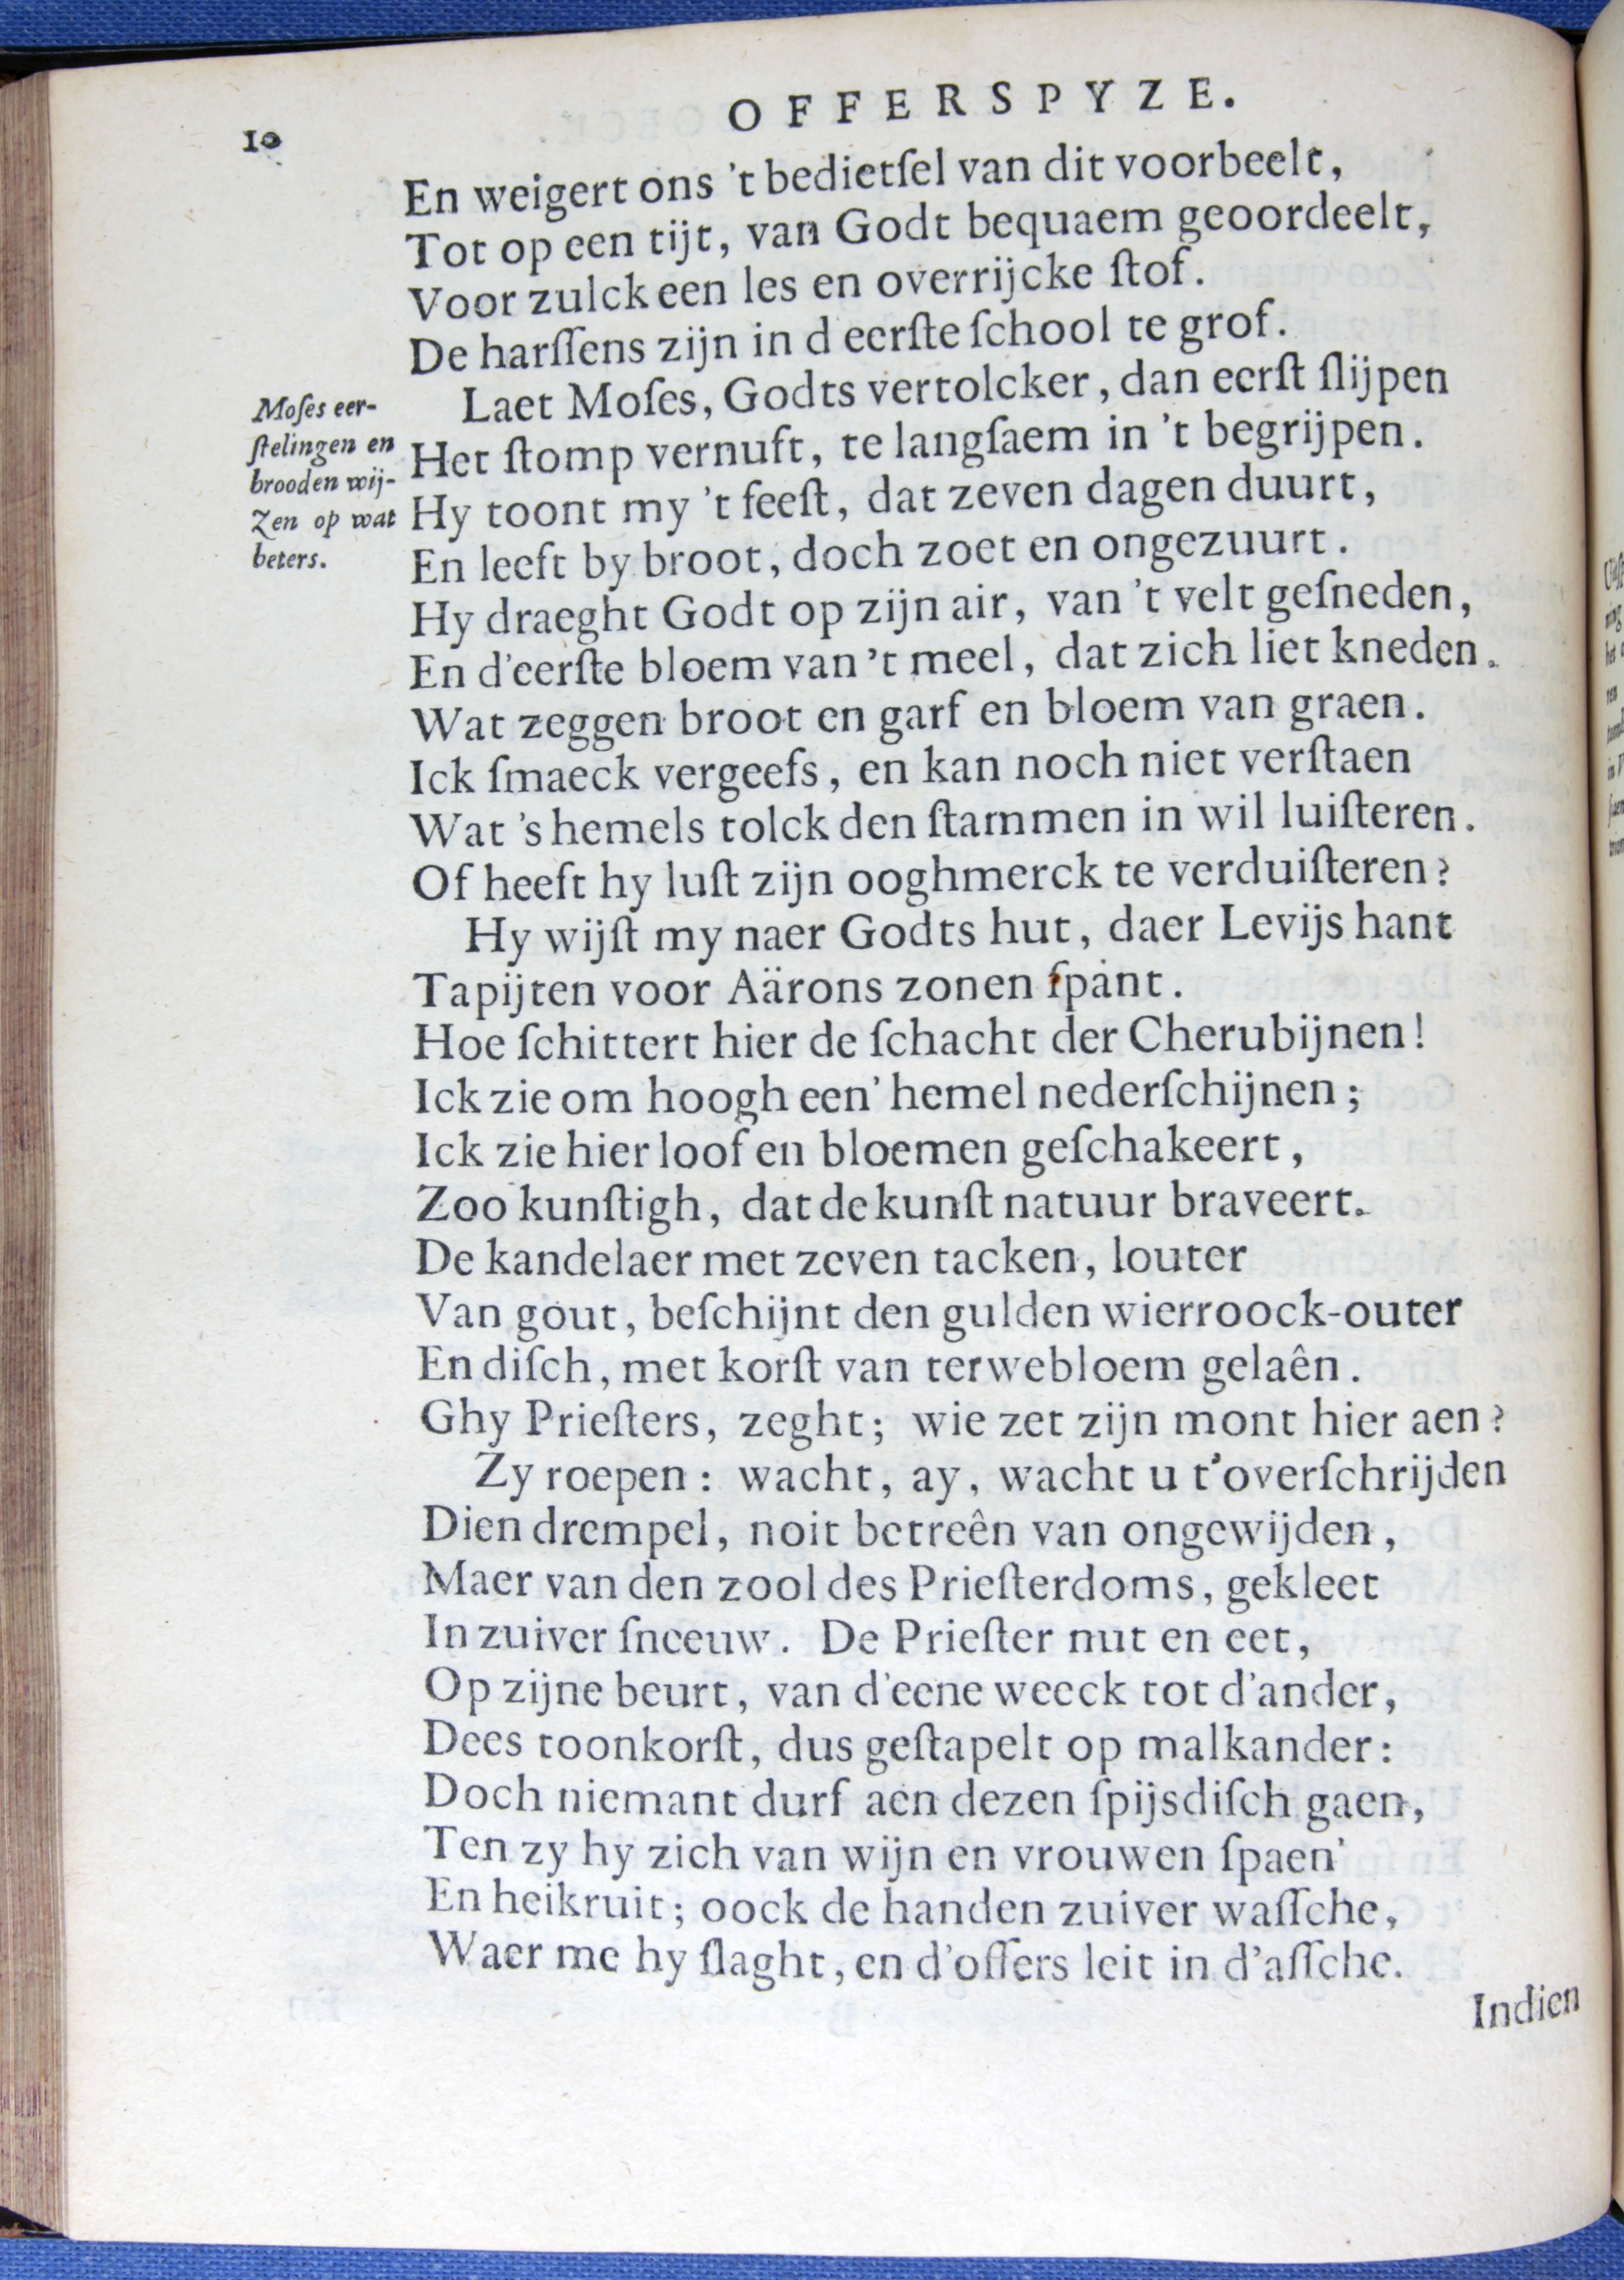 10
OFFERSPYZE.
En weigert ons 't bedietſel van dit voorbeelt,
Tot op een tijt, van Godt bequaem geoordeelt,
Voor zulck een les en overrijcke ſtof.
De harſſens zijn in d eerſte ſchool te grof.
Moſes eer-
ſtelingen en
brooden wij-
zen op wat
beters.
Laet Moſes, Godts vertolcker, dan eerſt ſlijpen
Het ſtomp vernuft, te langſaem in 't begrijpen.
Hy toont my 't feeſt, dat zeven dagen duurt,
En leeft by broot, doch zoet en ongezuurt.
Hy draeght Godt op zijn air, van 't velt geſneden,
En d'eerſte bloem van 't meel, dat zich liet kneden.
Wat zeggen broot en garf en bloem van graen.
Ick ſmaeck vergeefs, en kan noch niet verſtaen
Wat 's hemels tolck den ſtammen in wil luiſteren.
Of heeft hy luſt zijn ooghmerck te verduiſteren?
Hy wijſt my naer Godts hut, daer Levijs hant
Tapijten voor Aärons zonen ſpant.
Hoe ſchittert hier de ſchacht der Cherubijnen!
Ick zie om hoogh een' hemel nederſchijnen;
Ick zie hier loof en bloemen geſchakeert,
Zoo kunſtigh, dat de kunſt natuur braveert.
De kandelaer met zeven tacken, louter
Van gout, beſchijnt den gulden wierroock-outer
En diſch, met korſt van terwebloem gelaên.
Ghy Prieſters, zeght; wie zet zijn mont hier aen?
Zy roepen: wacht, ay, wacht u t'overſchrijden
Dien drempel, noit betreên van ongewijden,
Maer van den zool des Prieſterdoms, gekleet
In zuiver ſneeuw. De Prieſter nut en eet,
Op zijne beurt, van d'eene weeck tot d'ander,
Dees toonkorſt, dus geſtapelt op malkander:
Doch niemant durf aen dezen ſpijsdiſch gaen,
Ten zy hy zich van wijn en vrouwen ſpaen'
En heikruit; oock de handen zuiver waſſche,
Waer me hy ſlaght, en d'offers leit in d'aſſche.
Indien